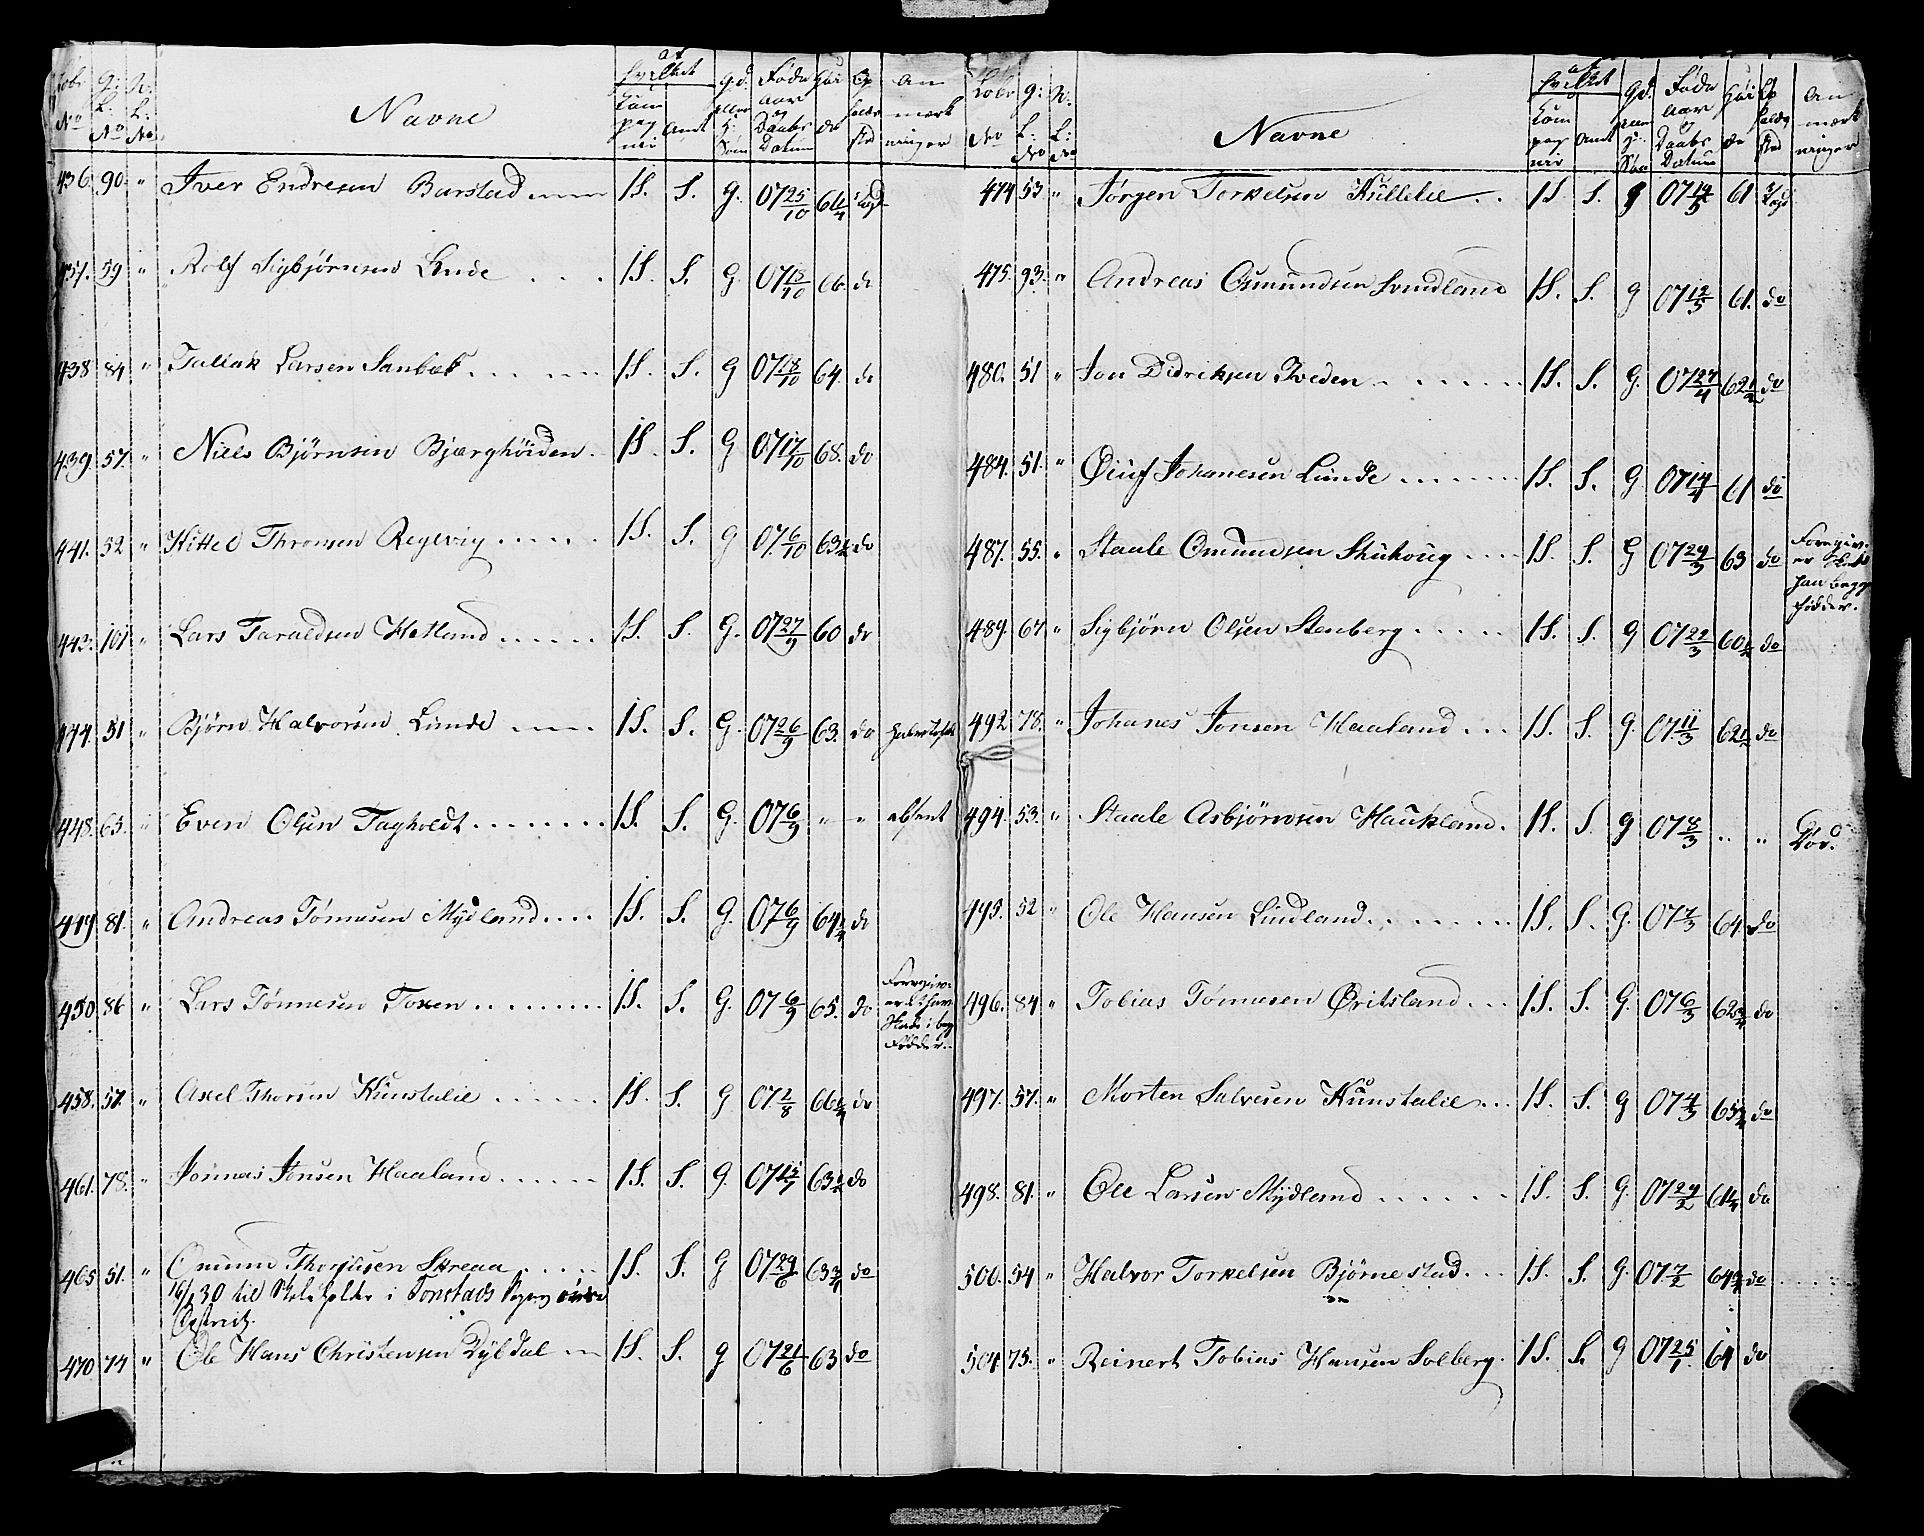 Løbe No | G: L: No | N: L: No | Navne | af hvilket Kompagni | Amt | Gd. eller H: Søn | Føde Aar og Daabs Datum | Høide | Opholds Sted | Anmærkninger
436. 90. " Iver Endresen Barstad 1S. S. G. 07 25/10 66 1/4 i Lægd
437. 59 " Rolf Sigbjørnsen Lunde 1S. S. G. 07 18/10 66. do
438 84 " Tallak Larsen Sanbæk 1S. S. G 07 18/10 64. do
439 57. " Niels Bjørnsen Bjærghöiden 1S. S. G 07 17/10 68. do
441. 52 " Kittel Thronsen Regevig 1S. S. G 07 6/10 63 1/2 do
443. 101 " Lars Taraldsen Hetland 1S. S. G. 07 27/9 60 do
444. 51 " Bjørn Halvorsen Lunde 1S. S. G. 07 26/9 63. do
448. 65. " Even Olsen Fagholdt 1S. S. G. 07 6/9 " " absent
449 81. " Andreas Tønnesen Mydland 1S. S. G. 07 6/9 64 1/4 do
450 86 " Lars Tønnesen Toxen 1S. S. G. 07 6/9 65. do
Foregiv
er
i beg
Fødder.
458. 57. " Axel Thorsen Kunstalie 1S. S. G 07 2/8 66 1/4 do
461. 78. " Jonnas Jonsen Haaland 1S. S. G. 07 15/7 63 1/2 do
465 51. " Omund Thorjusen Skreaa 1S. S. G 07 29/6 63 3/4 do
16/1 30 til Skoleholder i Tonstads Sogns øvre
District.
470 74 " Ole Hans Christensen Dyldal 1S. S. G 07 21/6 63 do
Løbe No | G: L: No | N: L: No | Navne | af hvilket Kompagni | Amt | Gd. eller H: Søn | Føde Aar og Daabs Datum | Høide | Opholds Sted | Anmærkninger
474 53 " Jørgen Torkelsen Kullelie 1S S. G 07 14/5 61 i Lægd
475. 93. " Andreas Osmundsen Svindland 1S. S. G 07 12/5 61. do
480. 51 " Jon Didriksen Tveden 1S. S. G. 07 27/4 62 1/2 do
484. 51. " Oluf Johanesen Lunde 1S. S. G 07 14/4 61 do
487. 55. " Staale Omundsen Skihoug 1S. S. G 07 29/3 63 do
Foregiv
er
paa begge
Fødder.
489. 67 " Sigbjørn Olsen Stenberg 1S. S. G 07 22/3 60 1/2 do
492 78. " Johanes Jonsen Haaland 1S. S. G. 07 11/3 62 1/2 do
494. 53. " Staale Asbjørnsen Haukland. 1S. S G 07 8/3 " " Død.
495. 52 " Ole Hansen Lindland 1S. S. G. 07 7/3 64. do
496. 84 " Tobias Tønnesen Øvitsland 1S. S G. 07 6/3 62 3/4 do
497. 57. " Morten Salvesen Kunstalie 1S. S. G 07 4/3 65 3/4 do
498. 81. " Ole Larsen Mydland 1S. S G. 07 24/2 61 1/4 do
500. 54 " Halvor Torkelsen Bjørnestad 1S. S G. 07 7/2 64 3/4 do
504 75. " Reinert Tobias Hansen Solberg. 1S. S. G 07 25/1 64 do